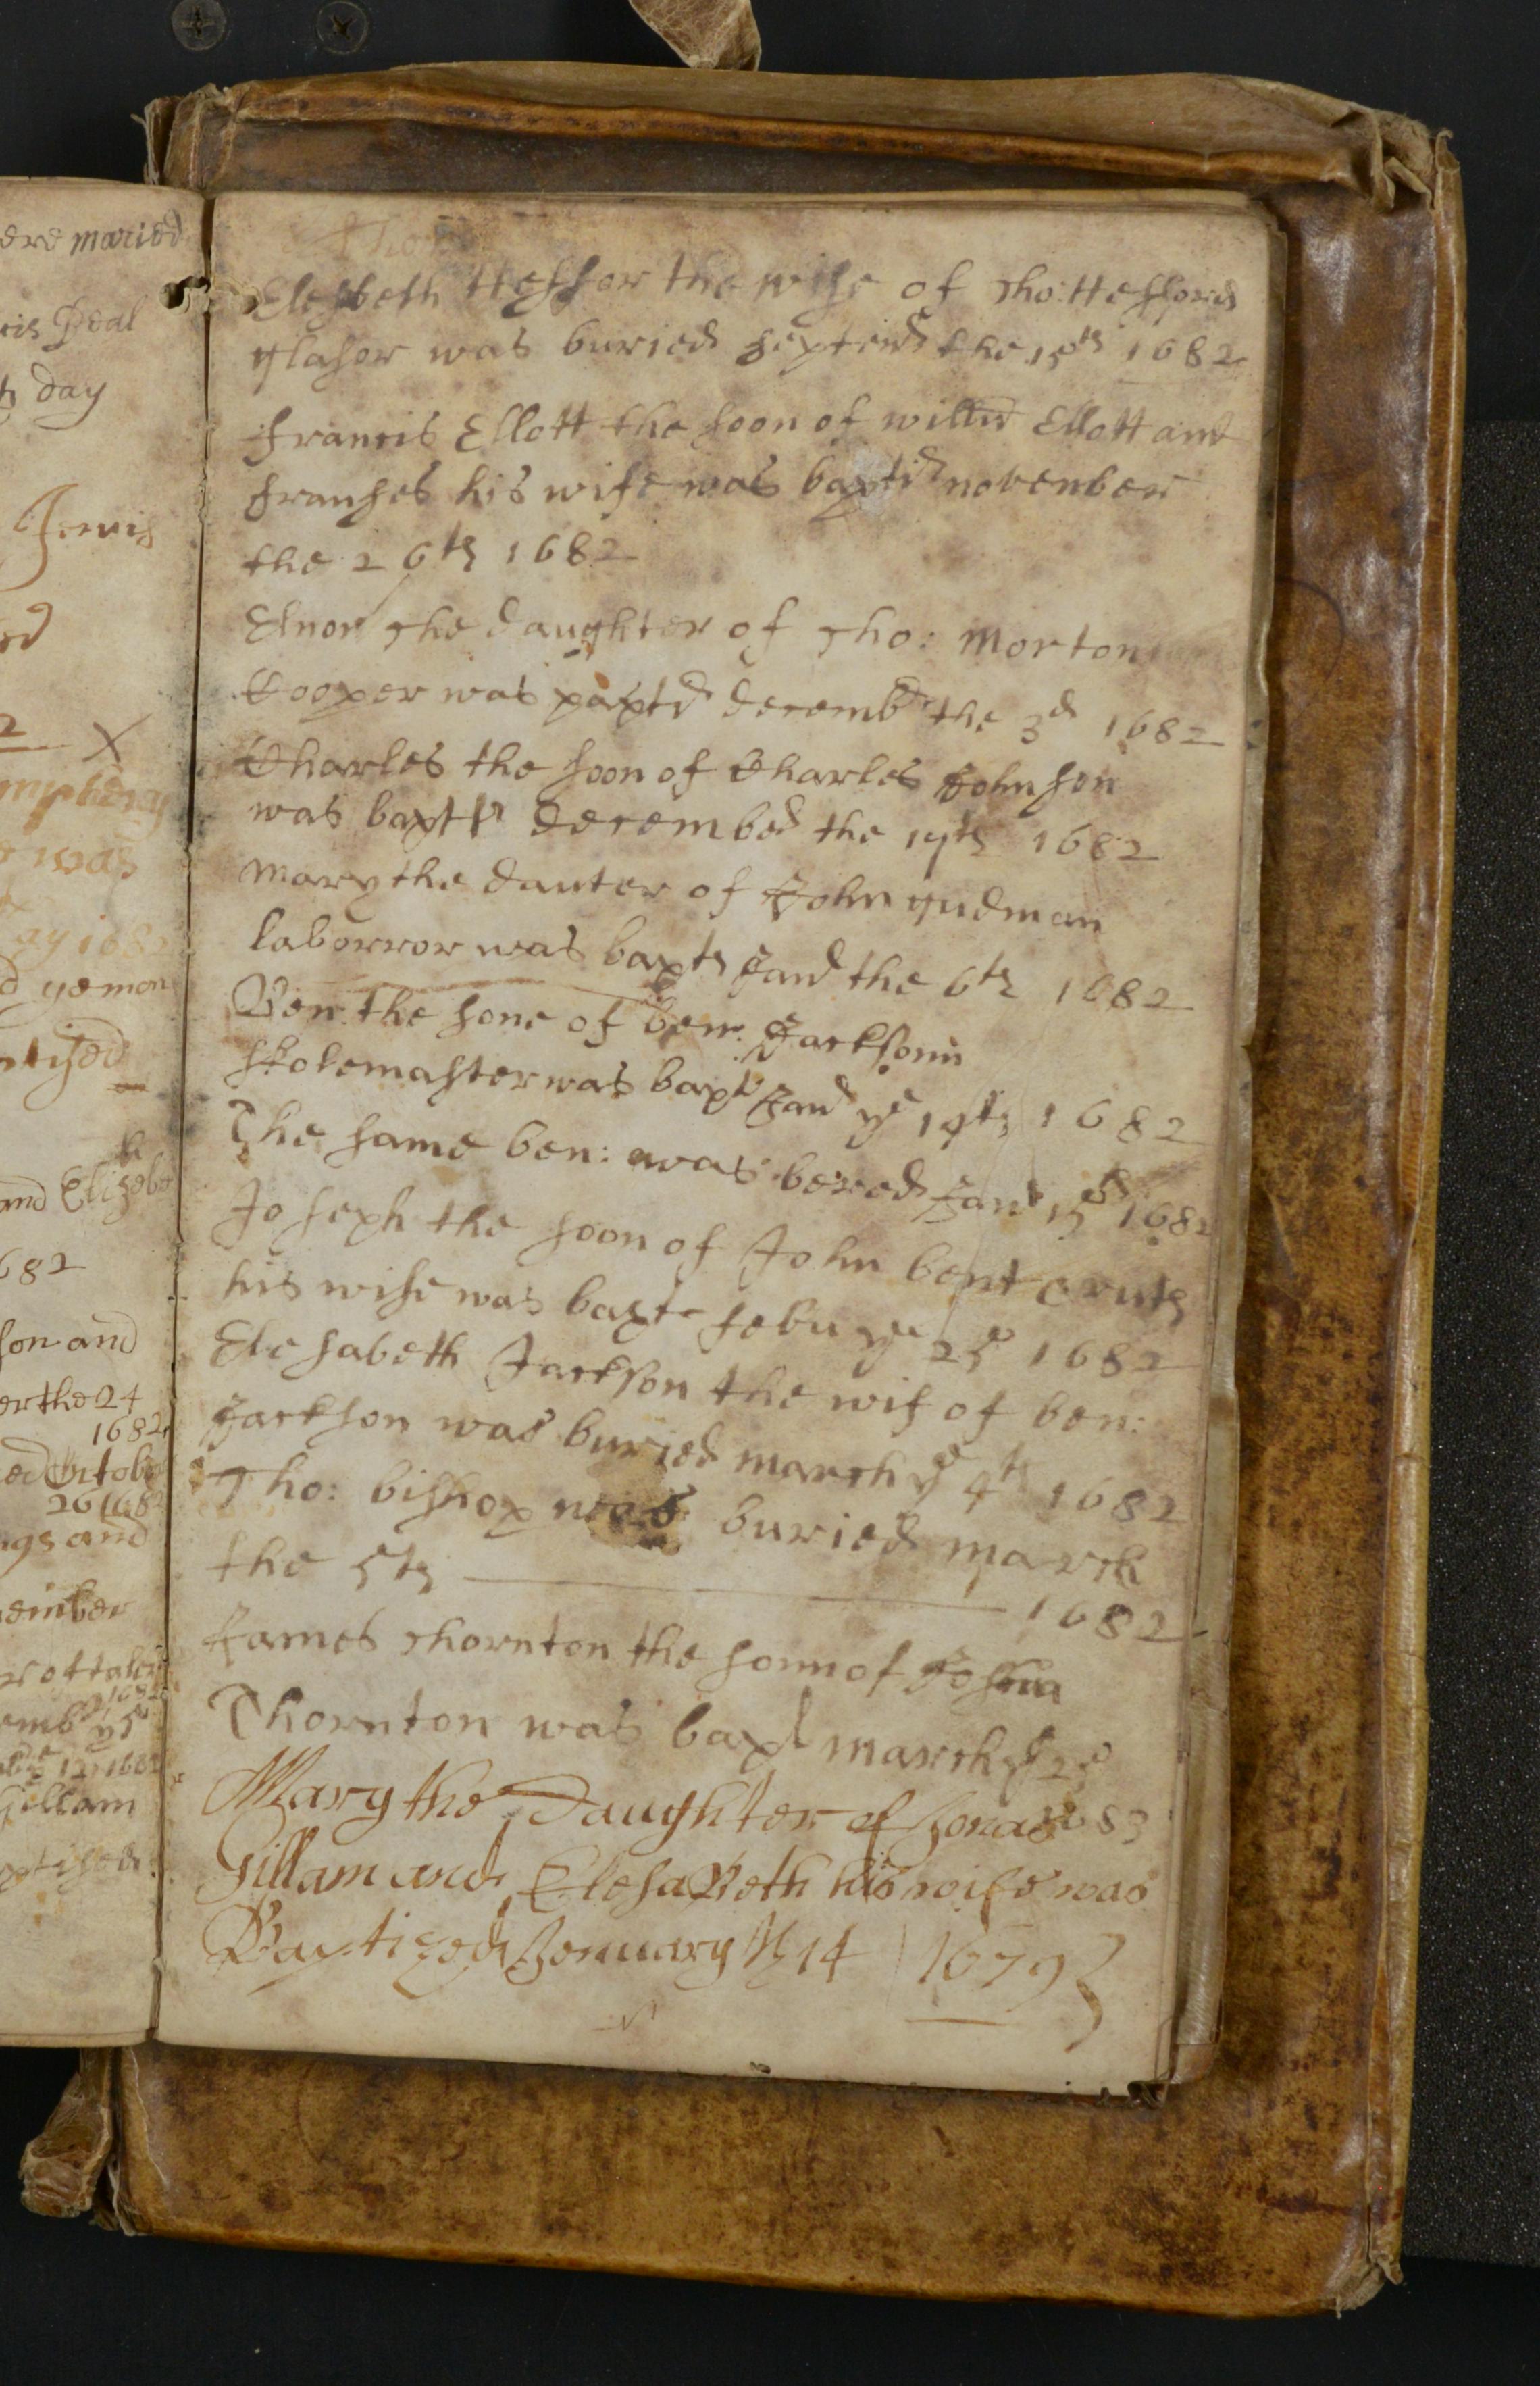 ere maried
Deal
day
Jervis
2 X
was
ay 1682
yemon
ptised
and Elizebe
682
son and
er the 24
1682
ed October
26 1682
ngs and
vember
12 1682
Gillam
ptised
Elesbeth Hessor the wife of Tho: Hessors
glasor was buried septemd the 15th 1682
francis Ellott the soon of willm Ellott and
franses his wife was baptd november
the 26th 1682
Elnor the daughter of Tho: Morton
Cooper was paptd decembr the 3d 1682
Charles the soon of Charles Johnson
was bapt december the 17th 1682
Mary the dauter of John gudman
laborror was bapt Jand the 6th 1682
Ben the sone of ben: Jacksonn
skolemaster was bapt Jand ye 14th 1682
The same ben: was bered Jand 15th 1682
Joseph the soon of John bent & ruth
his wife was bapt febu ye 25 1682
Elesabeth Jackson the wif of ben:
Jackson was buried march ye 4th 1682
Tho: bishop was buried march
the 5th 1682
James Thornton the sonn of Joshua
Thornton was bapt march ye 25
Mary the Daughter of Jonas 83
Gillam and ElesaBeth his wife was
Baptized Jenuary th 14 1679